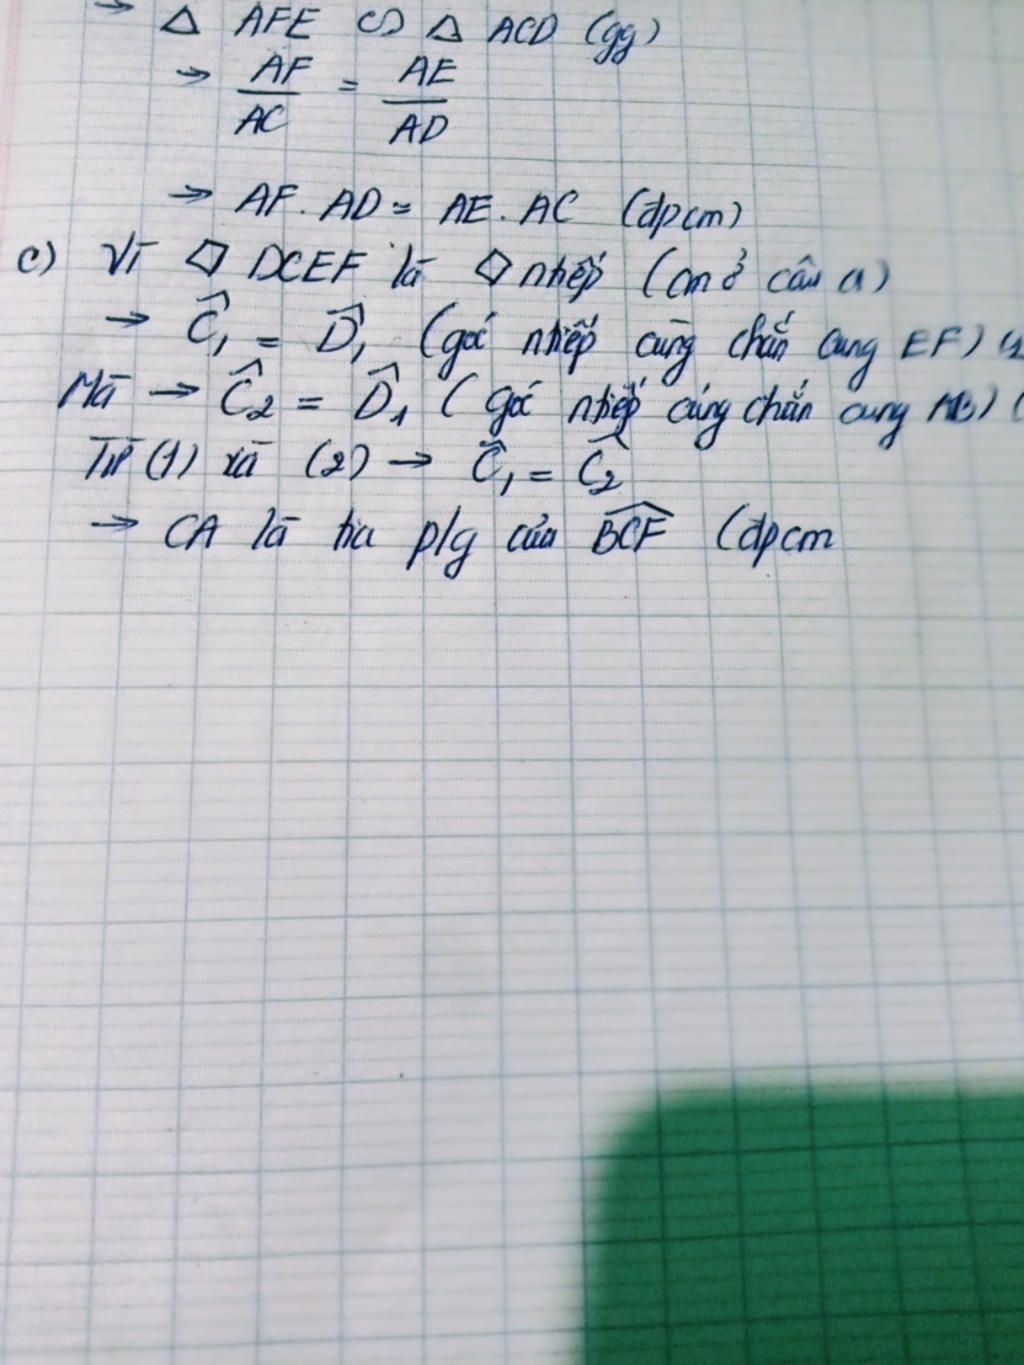 → △ AFE ∽ △ ACD (gg)
→ AF/AC = AE/AD
→ AF. AD = AE. AC (đpcm)
c) Vì ◇ DCEF là ◇ nhiếp (cm ở câu a)
→ Ĉ₁ = D̂₁ (góc nhiếp cùng chắn cung EF) (1
Mà → Ĉ₂ = D̂₁ (góc nhiếp cùng chắn cung AB) (
Từ (1) và (2) → Ĉ₁ = Ĉ₂
→ CA là tia p/g của B̂CF (đpcm